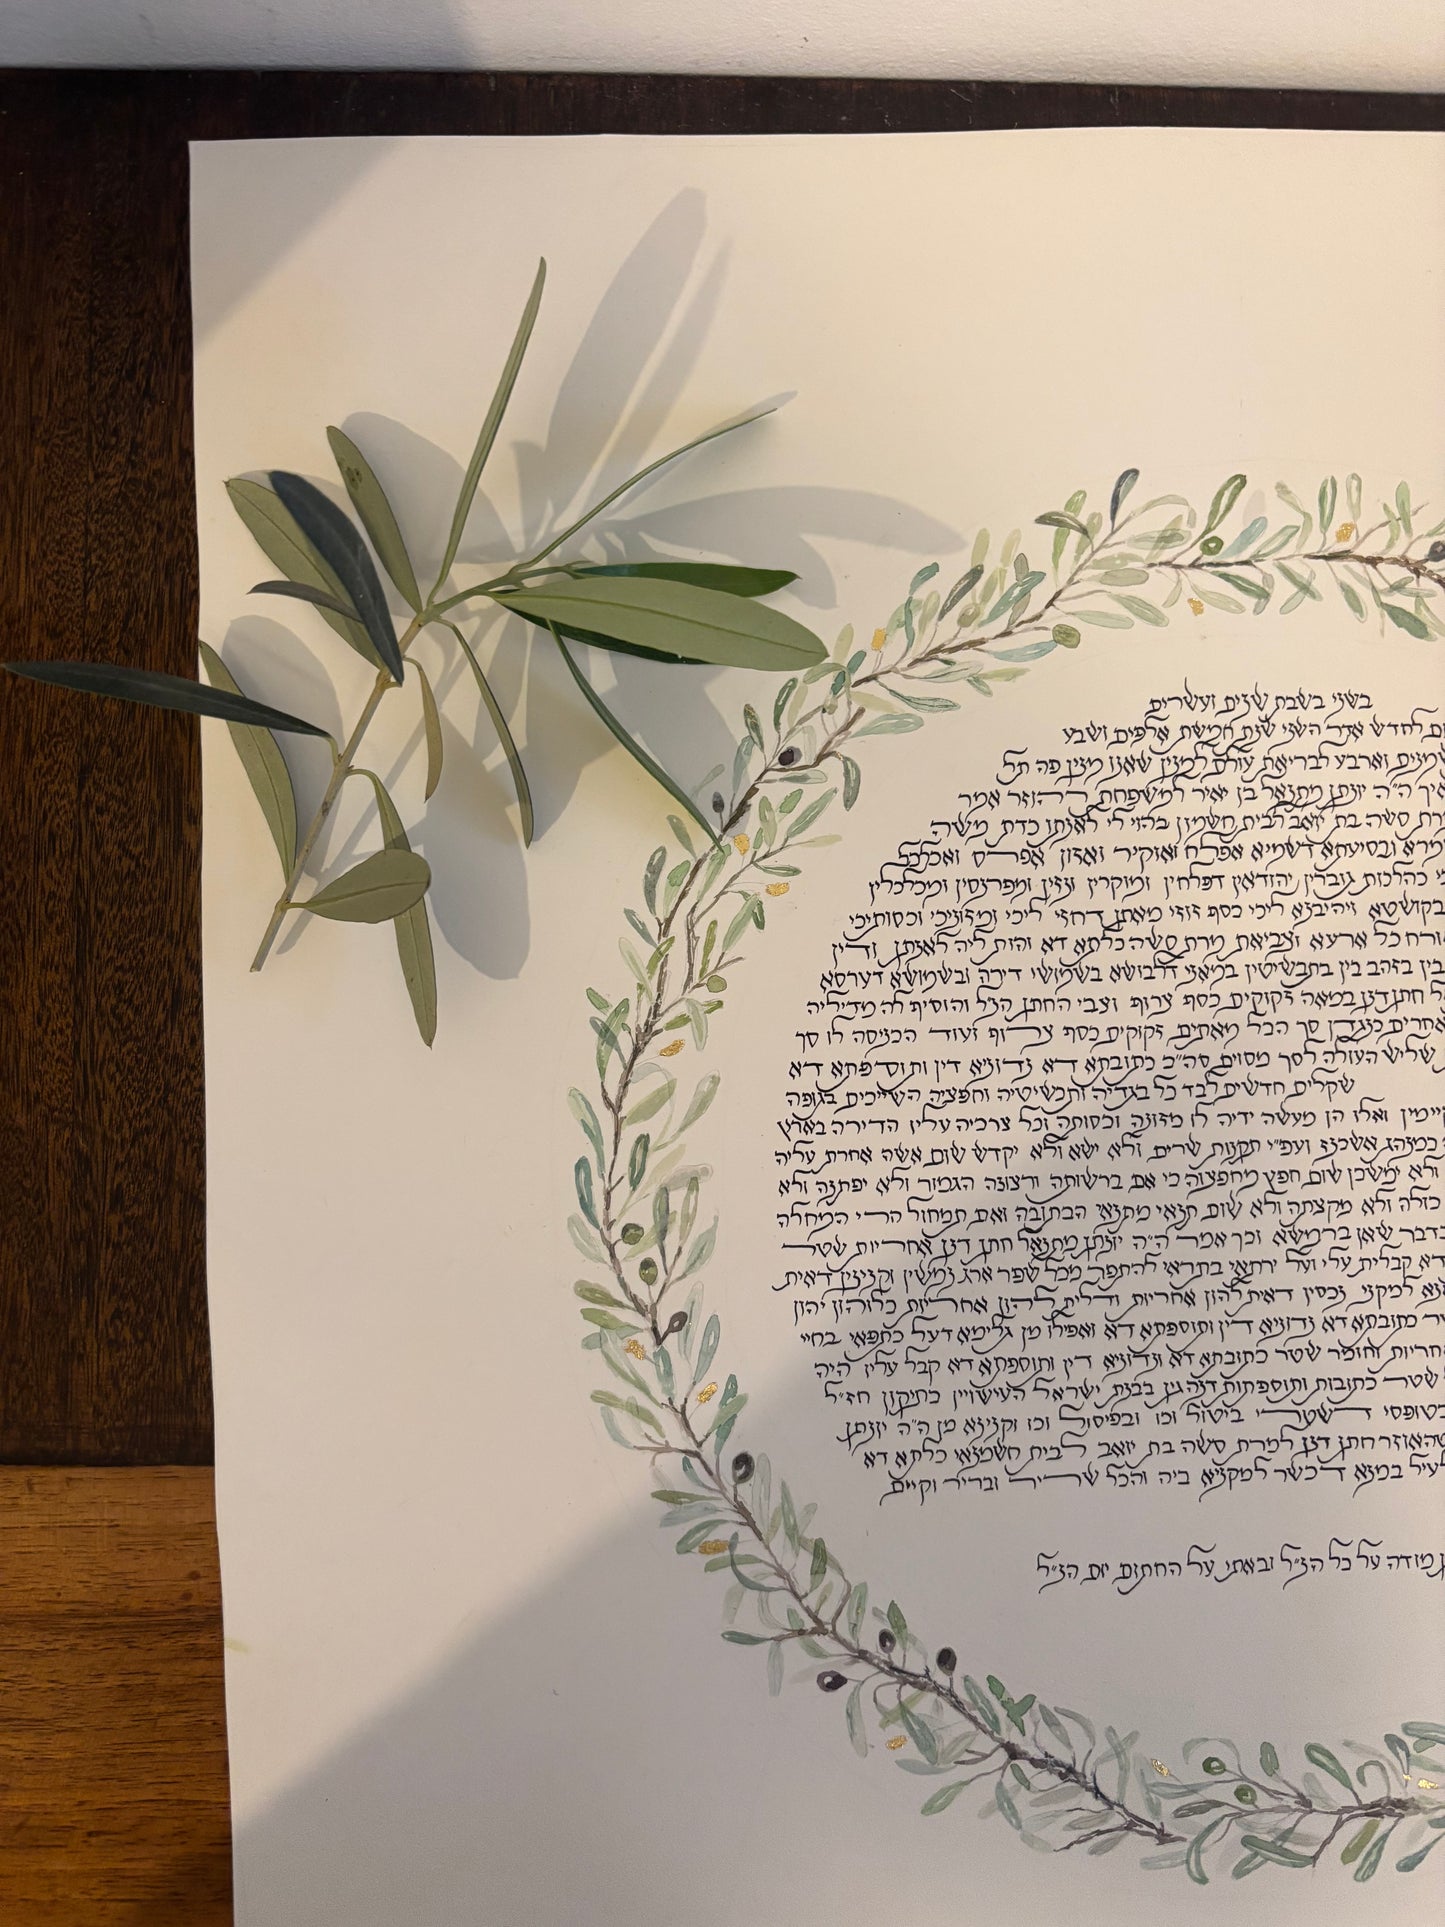 בשני בשבת שנים ועשרים
לחדש אדר השני שנת חמשת אלפים ושבע
שמנים וארבע לבריאת עולם למנין שאנו מנין פה תל
איך ה״ה יונתן מתנאל בן יאיר למשפחת אמר
מרת סשה בת יואב לבית חשמון בהוי לי לאנתו כדת משה
ובסיעתא דשמיא אפלח ואוקיר ואזון אפרנס ואכלכל
כהלכות גוברין יהודאין דפלחין ומוקרין וזנין ומפרנסין ומכלכלין
בקושטא ויהיבנא ליכי כסף זוזי מאתן דחזי ליכי ומזוניכי וכסותיכי
כל ארעא וצביאת מרת סשה כלתא דא והות ליה לאנתו ודין
בין בזהב בין בתכשיטין במאני דלבושא בשמושי דירה ובשמושא דערסא
חתן דנן במאה זקוקים כסף צרוף וצבי החתן הנ״ל והוסיף לה מדיליה
אחרים כנגדן סך הכל מאתים זקוקים כסף צרוף ועוד הכניסה לו סך
שליש העולה לסך מסוים סה״כ כתובתא דא נדוניא דין ותוספתא דא
שקלים חדשים לבד כל בגדיה ותכשיטיה וחפציה השייכים בגופה
קיימין ואלו הן מעשה ידיה לו מזונה וכסותה וכל צרכיה עליו הדירה בארץ
כמנהג אשכנז ועפ״י תקנות שרים ולא ישא ולא יקדש שום אשה אחרת עליה
ולא ימשכן שום חפץ מחפציה כי אם ברשותה ורצונה הגמור ולא יפתנה ולא
כולה ולא מקצתה ולא שום תנאי מתנאי הכתובה ואם תמחול הרי המחלה
כדבר שאין בו ממשא וכך אמר ה״ה יונתן מתנאל חתן דנן אחריות שטר
דא קבלית עלי ועל ירתאי בתראי להתפרע מכל שפר ארג נכסין וקנינין דאית
למקני נכסין דאית להון אחריות ודלית להון אחריות כלהון יהון
כתובתא דא נדוניא דין ותוספתא דא ואפילו מן גלימא דעל כתפאי בחיי
אחריות וחומר שטר כתובתא דא ונדוניא דין ותוספתא דא קבל עליו היה
שטרי כתובות ותוספתות דנהגין בבנת ישראל העשויין כתיקון חז״ל
כטופסי דשטרי ביטול וכו ובפיסול וכו וקנינא מן ה״ה יונתן
חתן דנן למרת סשה בת יואב לבית חשמונאי כלתא דא
לעיל במנא דכשר למקניא ביה והכל שריר ובריר וקיים
מודה על כל הנ״ל ובאתי על החתום יום הנ״ל